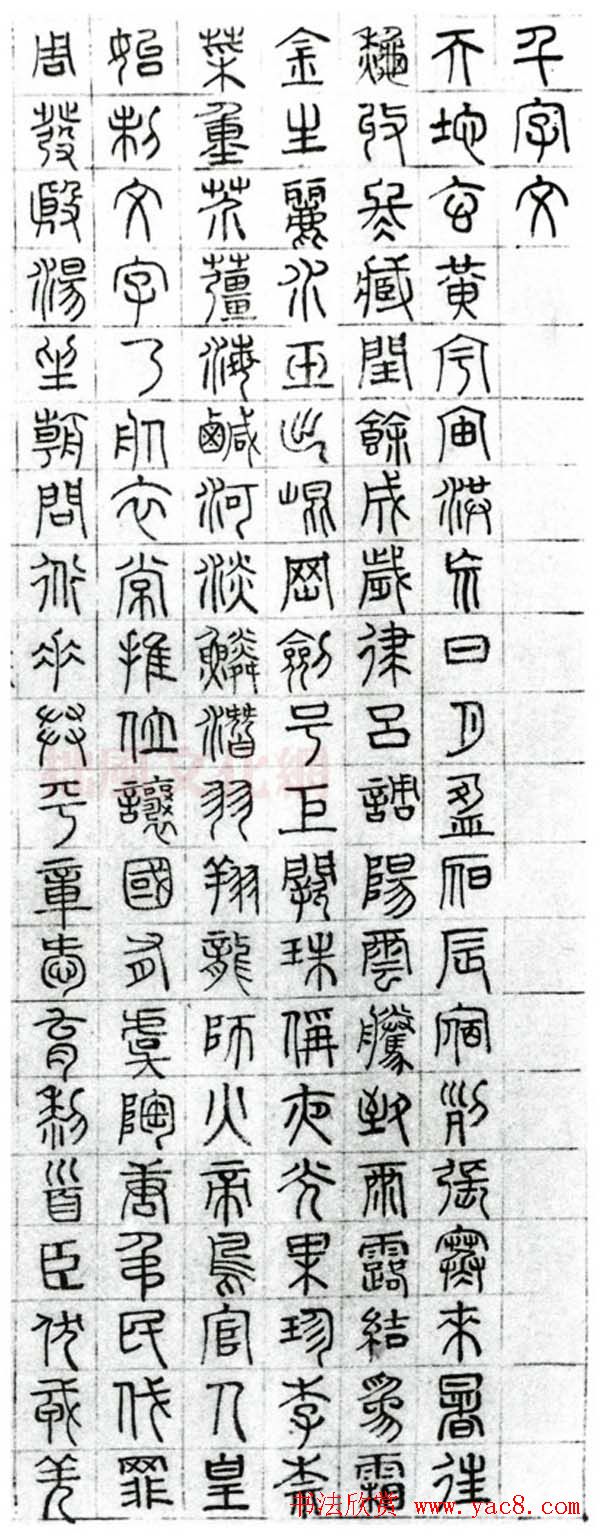 千字文
天地玄黃宇宙洪荒日月盈昃辰宿列張寒來暑往
秋收冬藏閏餘成歲律呂調陽雲騰致雨露結為霜
金生麗水玉出崐岡劍号巨闕珠稱夜光果珍李柰
菜重芥薑海鹹河淡鱗潛羽翔龍師火帝鳥官人皇
始制文字乃服衣常推位讓國有虞陶唐弔民伐罪
周發殷湯坐朝問道垂拱平章愛育黎首臣伏戎羌
风文化網
书法欣赏
www.yac8.com